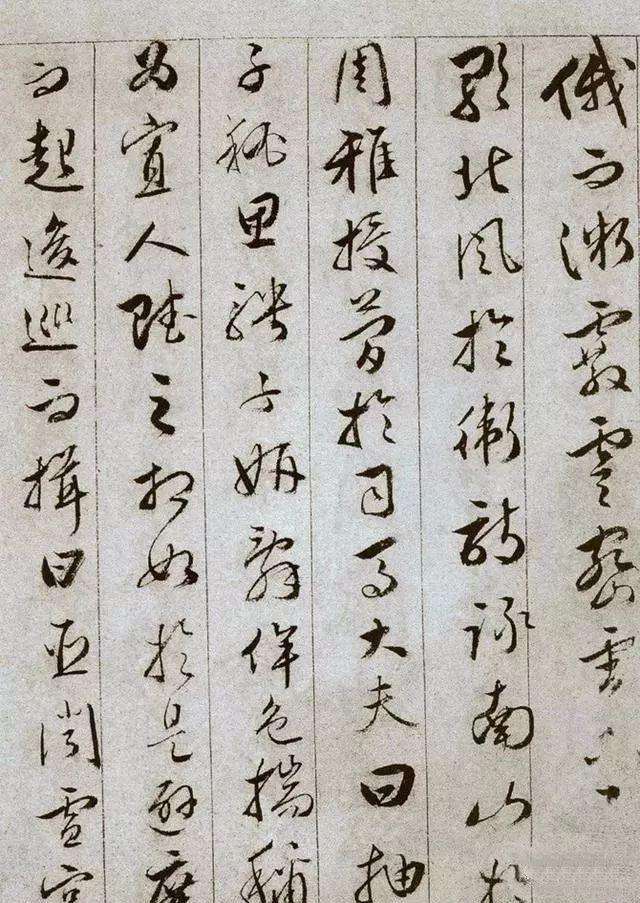 俄而微霰零密雪下
歌北風於衛詩詠南山於
周雅授簡於司馬大夫曰抽
子秘思騁子妍辭侔色揣稱
為寡人賦之相如於是避席
而起逡巡而揖曰臣聞雪宮